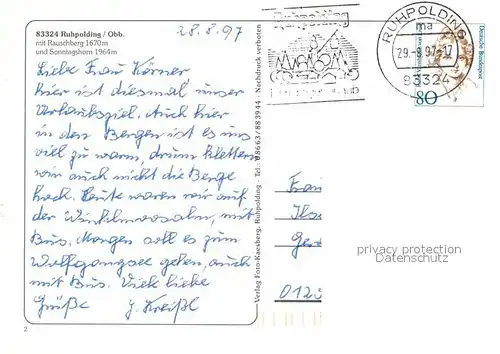 83324 Ruhpolding / Obb.
mit Rauschberg 1670m
und Sonntagshorn 1964m
28.8.97
Liebe Frau Körner
hier ist diesmal unser
Urlaubsziel. Auch hier
in den Bergen ist es uns
viel zu warm, drum klettern
wir auch nicht die Berge
hoch. Heute waren wir auf
der Winklmoosalm, mit
Bus. Morgen soll es zum
Wolfgangsee gehen, auch
mit Bus. Viele liebe
Grüße
2
Verlag Foto-Kaseberg, Ruhpolding - Tel.: 08663/883944 - Nachdruck verboten
Ruhpolding
RUHPOLDING
ma
29.-8.97-17
83324
Deutsche Bundespost
80
Frau
012
privacy protection
Datenschutz